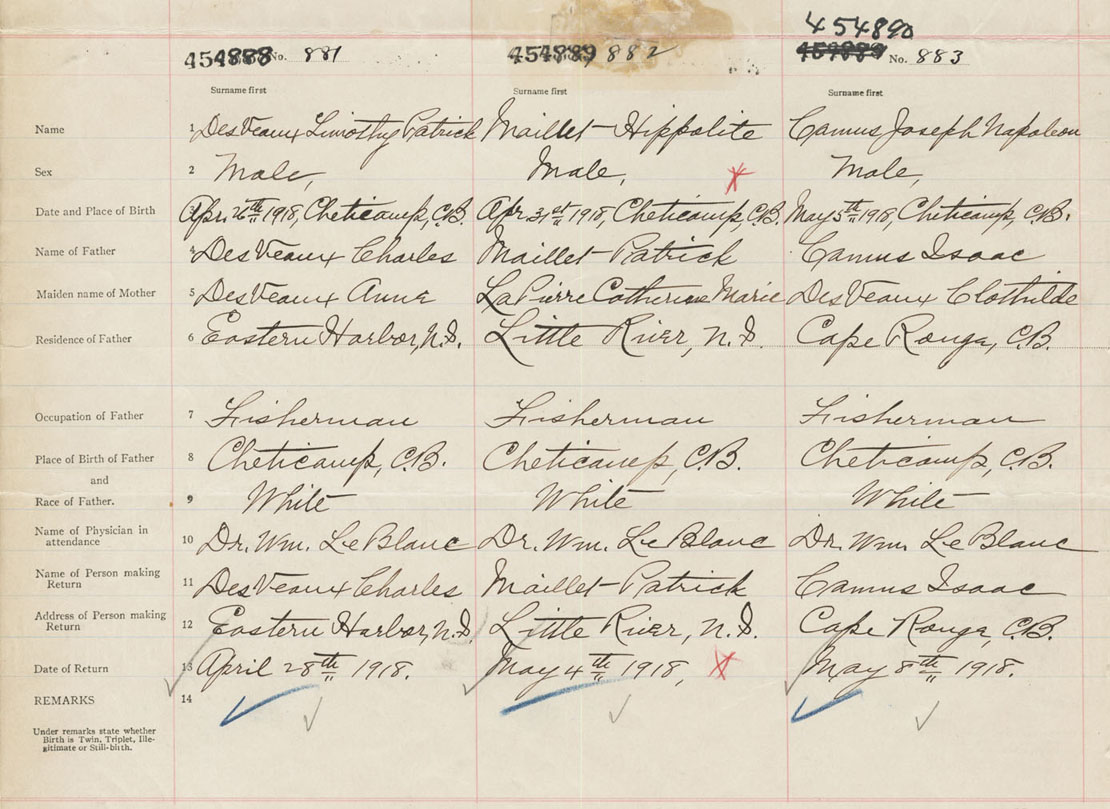 454890
454888 No. 881 454889 882 459889 No. 883
Surname first Surname first Surname first
Name 1 DesVeaux Timothy Patrick Maillet Hippolite Camus Joseph Napoleon
Sex 2 Male, Male, Male,
Date and Place of Birth Apr. 26th 1918, Cheticamp, C.B. Apr. 31st 1918, Cheticamp, C.B. May 5th 1918, Cheticamp, C.B.
Name of Father 4 DesVeaux Charles Maillet Patrick Camus Isaac
Maiden name of Mother 5 DesVeaux Anne LaPierre Catherine Marie DesVeaux Clothilde
Residence of Father 6 Eastern Harbor, N.S. Little River, N.S. Cape Rouge, C.B.
Occupation of Father 7 Fisherman Fisherman Fisherman
Place of Birth of Father 8 Cheticamp, C.B. Cheticamp, C.B. Cheticamp, C.B.
and
Race of Father. 9 White White White
Name of Physician in
attendance 10 Dr. Wm. LeBlanc Dr. Wm. LeBlanc Dr. Wm. LeBlanc
Name of Person making
Return 11 DesVeaux Charles Maillet Patrick Camus Isaac
Address of Person making
Return 12 Eastern Harbor, N.S. Little River, N.S. Cape Rouge, C.B.
Date of Return 13 April 28th 1918. May 4th 1918, May 8th 1918.
REMARKS 14
Under remarks state whether
Birth is Twin, Triplet, Ille-
gitimate or Still-birth.